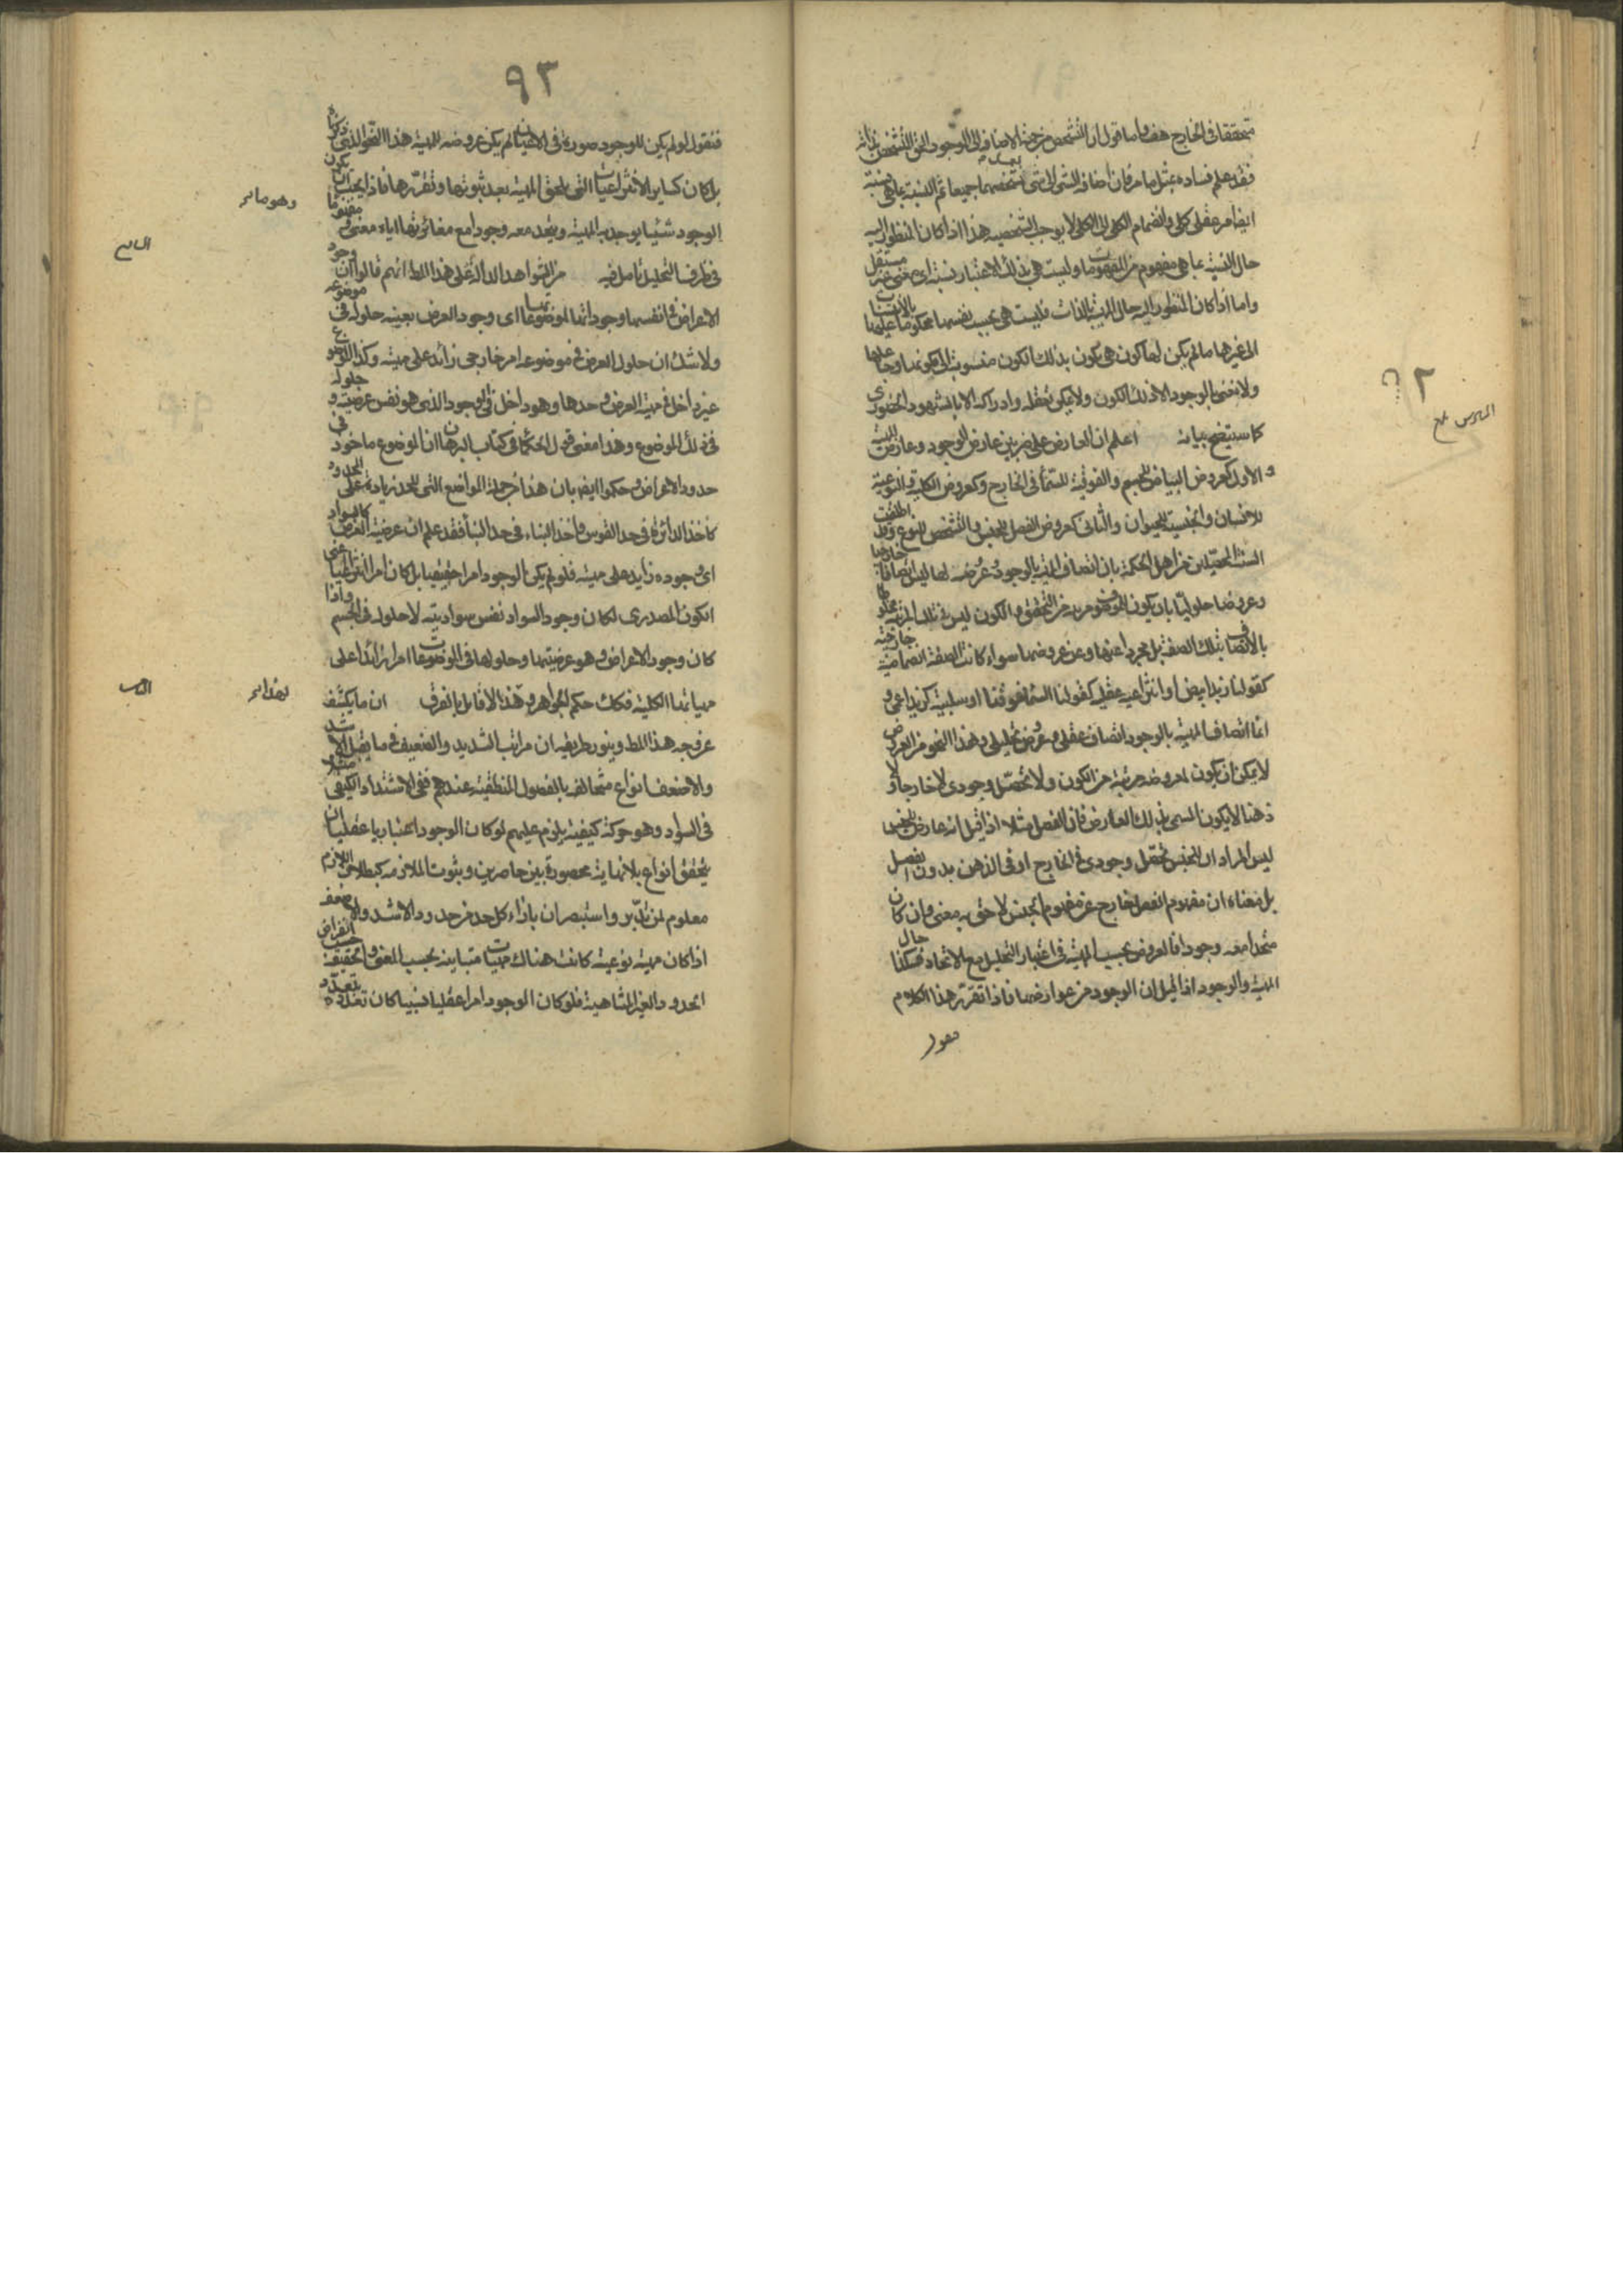 متحققا فى الخارج هف واما قول ان التشخص من جهة الاضافة الى الوجود الحق المتشخص بذاته
فقد علم فساده بمثل ما مر فان اضافة الشى الى شى بعد تشخصهما جميعا ثم النسبة بما هى نسبة
ايضا امر عقلى كلى وانضمام الكلى الى الكلى لا يوجب الشخصيه هذا اذا كان المنظور اليه
حال النسبة بما هى مفهوم من المفهومات وليست هى بذلك الاعتبار نسبة اى معنى غير مستقل
واما اذا كان المنظور اليه حال المهية بالذات فليست هى بحسب نفسها محكوما عليها بالانتساب
الى غيرها ما لم يكن لها كون هى يكون بذلك الكون منسوب الى مكونها وجاعلها
ولا نعنى بالوجود الا ذلك الكون ولا يمكن تعقله وادراكه الا بالشهود الحضورى
كما سيتضح بيانه اعلم ان العارض على ضربين عارض الوجود وعارض المهية
والاول كعروض البياض للجسم والفوقية للسماء فى الخارج وكعروض الكلية والنوعية
للانسان والجنسية للحيوان والثانى كعروض الفصل للجنس والتشخص للنوع وقد اطلقت
السنة المحصلين من اهل الحكمة بان اتصاف المهية بالوجود وعروضه لها ليس اتصافا خارجيا
وعروضا حلوليا بان يكون للموصوف مرتبة من التحقق والكون ليس فى تلك المرتبة مخلوطا
بالاتصاف بتلك الصفة بل مجردا عنها وعن عروضها سواء كانت الصفة انضمامية خارجية
كقولنا زيد ابيض او انتزاعية عقلية كقولنا السماء فوقنا او سلبية كزيد اعمى و
انما اتصاف المهية بالوجود اتصاف عقلى وعروض تحليلى وهذا النحو من العروض
لا يمكن ان يكون لمعروضه مرتبة من الكون ولا تحصل وجودى لا خارجا ولا
ذهنا لا يكون المسمى بذلك العارض فان الفصل مثلا اذا قيل انه عارض للجنس
ليس المراد ان للجنس تحصل وجودى فى الخارج او فى الذهن بدون الفصل
بل معناه ان مفهوم الفصل خارج عن مفهوم الجنس لاحق به معنى وان كان
متحدا معه وجودا فالعروض بحسب المهية فى اعتبار التحليل مع الاتحاد فهكذا حال
المهية والوجود اذا قيل ان الوجود من عوارضها فاذا تقرر هذا الكلام
فنقول
٢
السادس
٩٢
فنقول لو لم يكن للوجود صورة فى الاعيان لم يكن عروضه للمهية هذا النحو الذى ذكرناه
بل كان كساير الانتزاعيات التى تلحق المهية بعد ثبوتها وتقررها فاذا يجب ان يكون
الوجود شيئا يوجد به المهية ويتحد معه وجودا مع مغائرتها اياه معنى ومفهوما
فى ظرف التحليل تامل فيه من الشواهد الدالة على هذا المط انهم قالوا ان وجود
الاعراض فى انفسها وجوداتها لموضوعاتها اى وجود العرض بعينه حلوله فى موضوعه
ولا شك ان حلول العرض فى موضوعه امر خارجى زائد على مهيته وكذا الموضوع
غير داخل فى مهية العرض وحدها وهو داخل فى الوجود الذى هو نفس عرضيته وحلوله
فى ذلك الموضوع وهذا معنى قول الحكماء فى كتاب البرهان ان الموضوع ماخوذ فى
حدود الاعراض وحكموا ايضا بان هذا من جملة المواضع التى للحد زيادة على المحدود
كاخذ الدائرة فى حد القوس واخذ البناء فى حد البناء فقد علم ان عرضية العرض كالسواد
اى وجوده زايد على مهيته فلو لم يكن الوجود امرا حقيقيا بل كان امرا انتزاعيا اعنى
الكون المصدرى لكان وجود السواد نفس سواديته لا حلوله فى الجسم واذا
كان وجود الاعراض وهو عرضيتها وحلولها فى الموضوعات امرا زائدا على
مهياتها الكلية فكك حكم الجواهر وهذا لا قايل بالفرق ان ما يكشف
عن وجه هذا المط وينور طريقه ان مراتب الشديد والضعيف فيما يقبل الاشد
والاضعف انواع متخالفه بالفصول المنطقية عندهم ففى الاشتداد الكيفى مثلا
فى السواد وهو حركة كيفية يلزم عليهم لو كان الوجود اعتباريا عقليا ان
يتحقق انواع بلا نهاية محصورة بين حاصرين وثبوت الملازمه كبطلان اللازم
معلوم لمن تدبر واستبصر ان بازاء كل حد من حدود الاشد والاضعف
اذا كان مهية نوعية كانت هناك مهيات متباينه بحسب المعنى والحقيقه حسب انفراض
الحدود الغير المتناهية فلو كان الوجود امرا عقليا نسبيا كان تعدده بتعدد
وهو ما
السابع
لهذا
الثامن